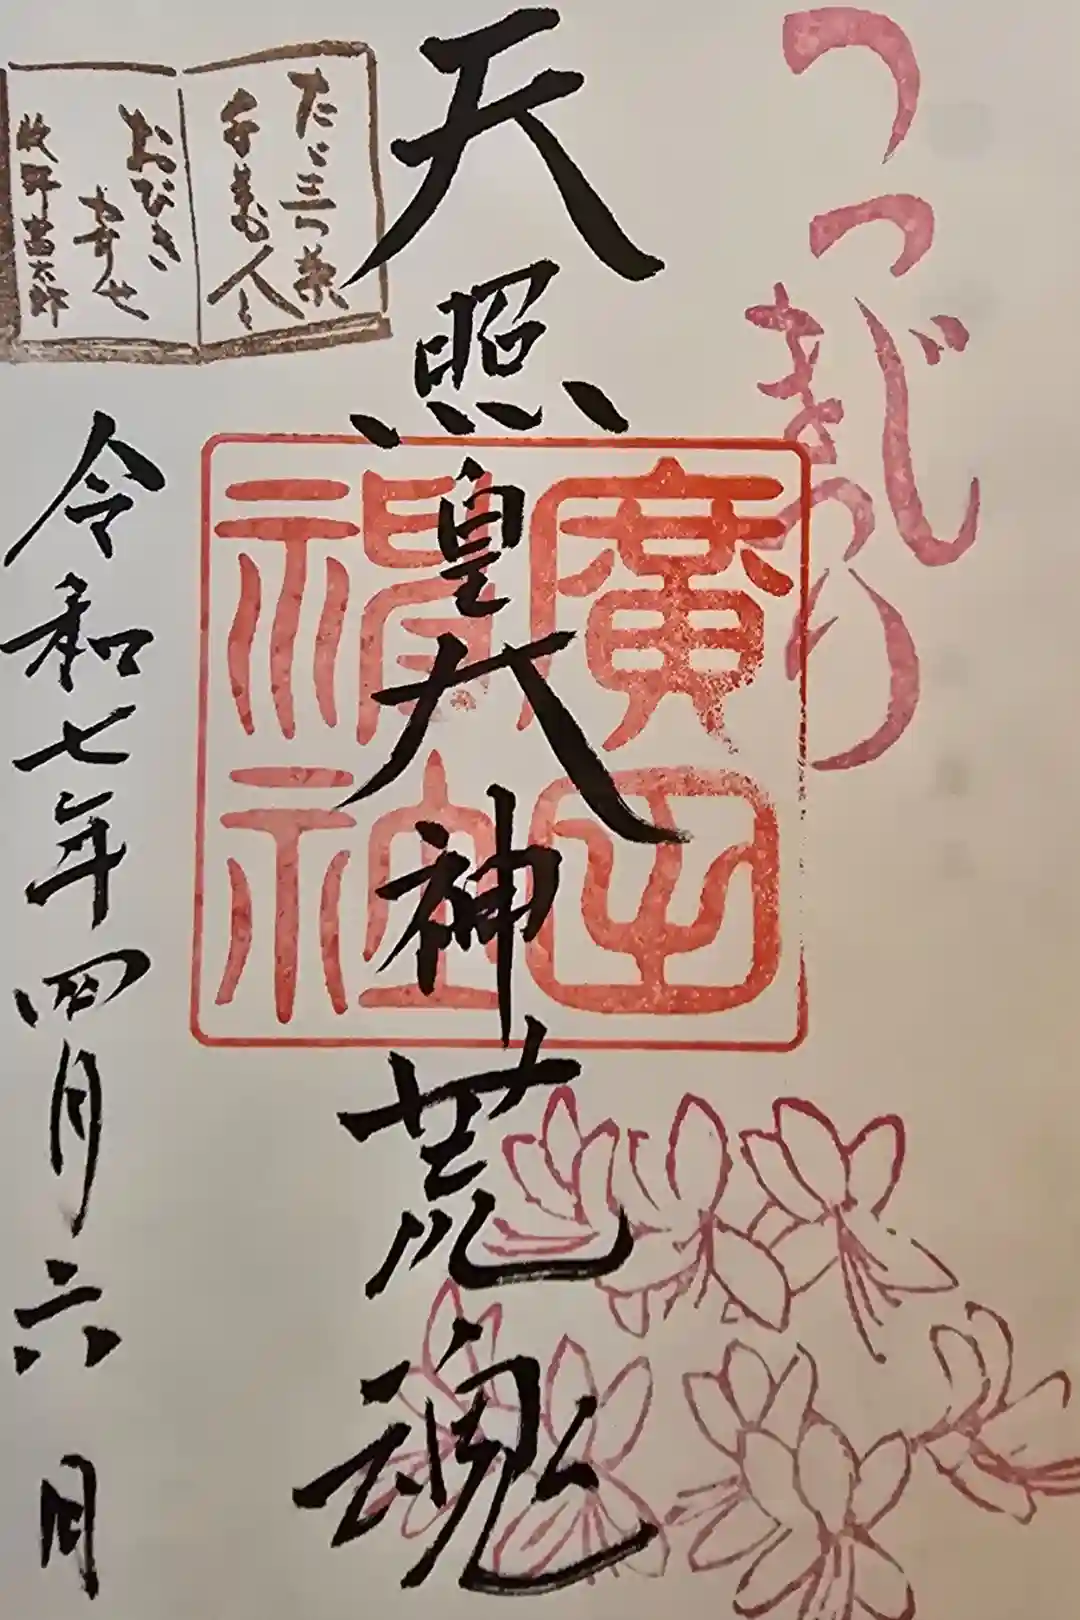 つつじまつり
天照皇大神荒魂
廣田神社
たゞ三つ葉
千万人を
おびき
寄せ
牧野富太郎
令和七年四月六日